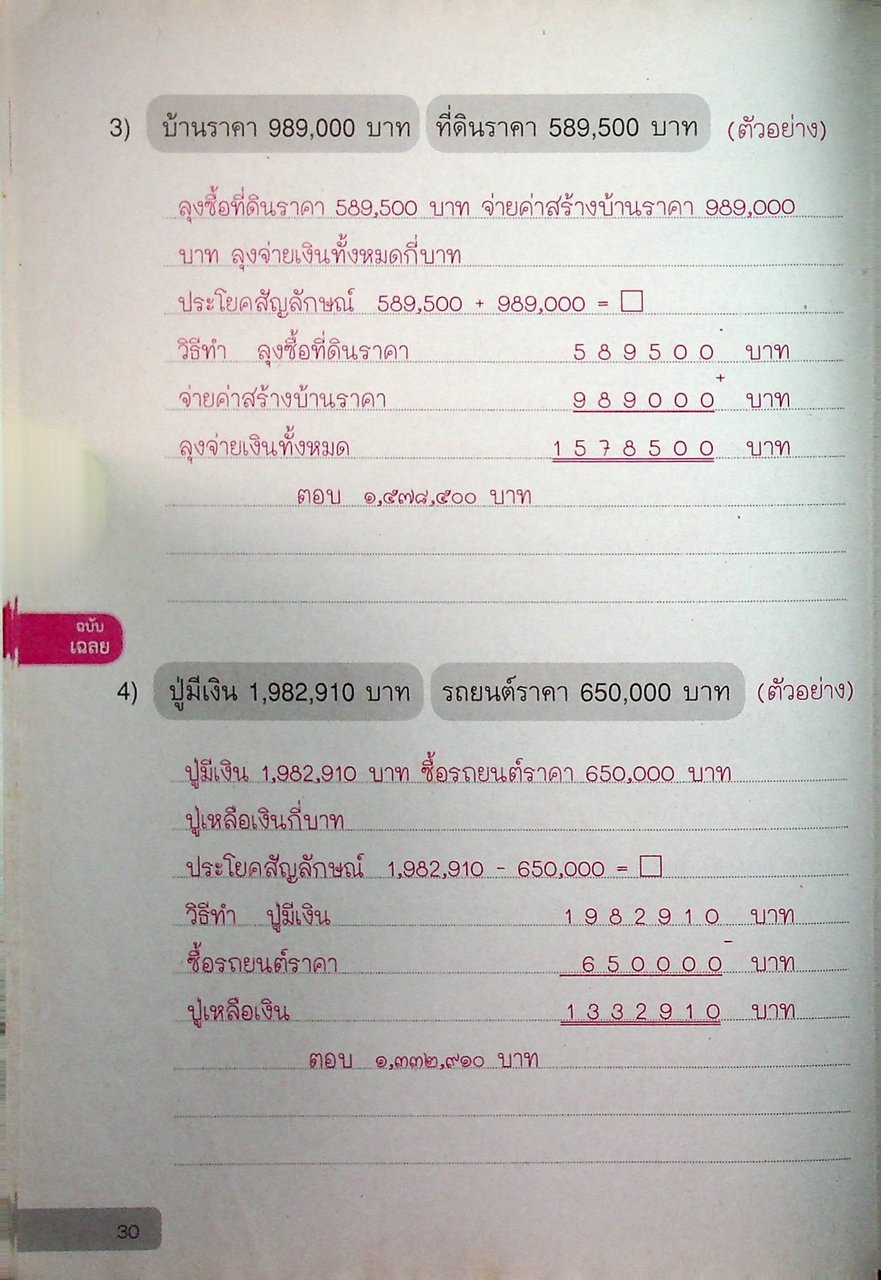 3) บ้านราคา 989,000 บาท ที่ดินราคา 589,500 บาท (ตัวอย่าง)
ลุงซื้อที่ดินราคา 589,500 บาท จ่ายค่าสร้างบ้านราคา 989,000
บาท ลุงจ่ายเงินทั้งหมดกี่บาท
ประโยคสัญลักษณ์ 589,500 + 989,000 = □
วิธีทำ ลุงซื้อที่ดินราคา 5 8 9 5 0 0 บาท
+
จ่ายค่าสร้างบ้านราคา 9 8 9 0 0 0 บาท
ลุงจ่ายเงินทั้งหมด 1 5 7 8 5 0 0 บาท
ตอบ ๑,๕๗๘,๕๐๐ บาท
ฉบับ
เฉลย
4) ปู่มีเงิน 1,982,910 บาท รถยนต์ราคา 650,000 บาท (ตัวอย่าง)
ปู่มีเงิน 1,982,910 บาท ซื้อรถยนต์ราคา 650,000 บาท
ปู่เหลือเงินกี่บาท
ประโยคสัญลักษณ์ 1,982,910 - 650,000 = □
วิธีทำ ปู่มีเงิน 1 9 8 2 9 1 0 บาท
-
ซื้อรถยนต์ราคา 6 5 0 0 0 0 บาท
ปู่เหลือเงิน 1 3 3 2 9 1 0 บาท
ตอบ ๑,๓๓๒,๙๑๐ บาท
30